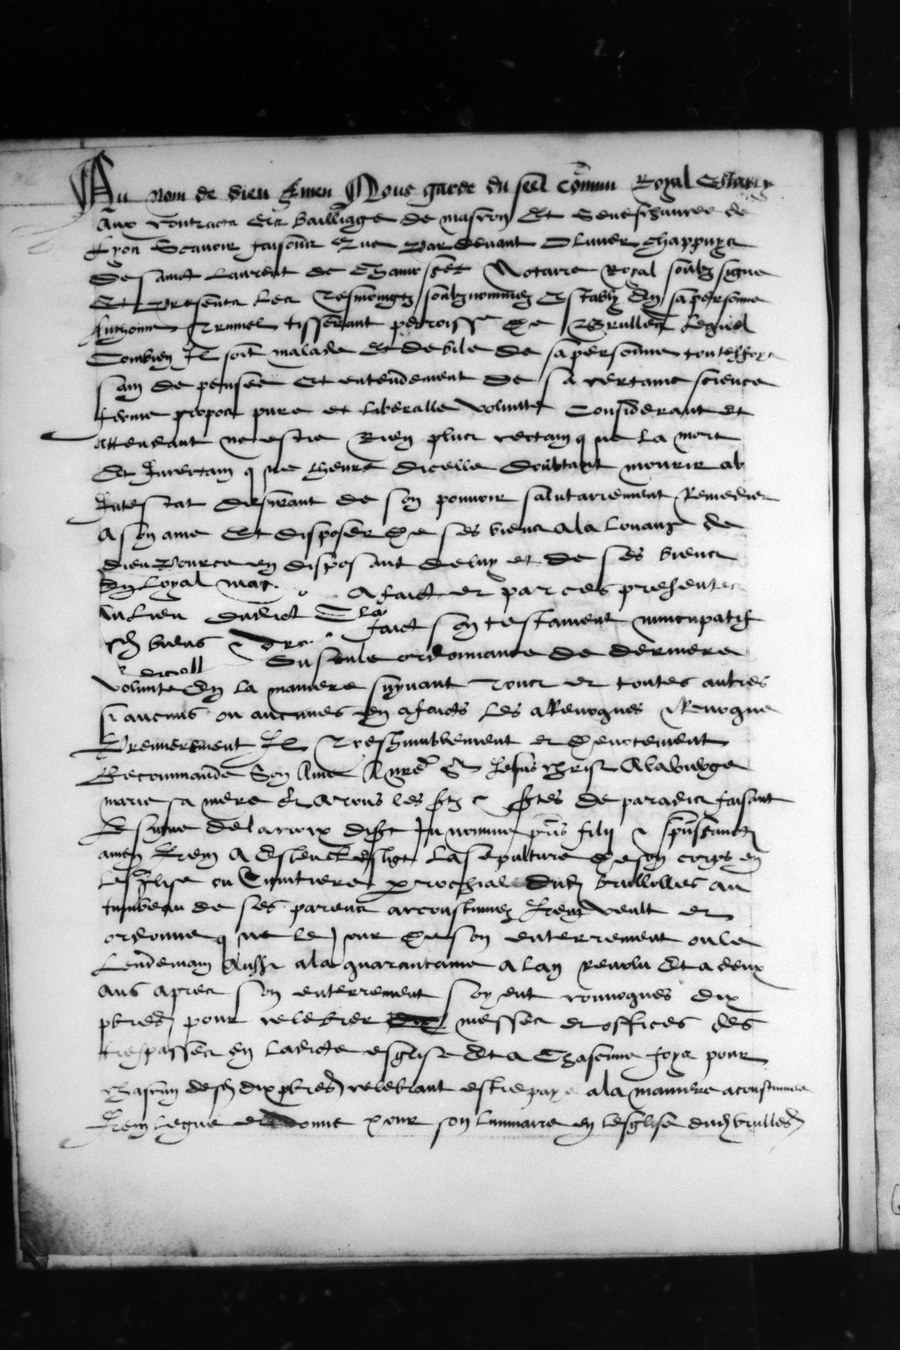 Au nom de dieu Amen Nous garde du seel comun Royal Estably
aux contractz es bailliage de mascon Et Seneschaucee de
Lyon Scavoir faisons Que par devant Oliuier Chappuys
de sainct Laurent de Chamosset Notaire Royal soubz signe
Et presentz les tesmoingtz soubznommez Estably En sa personne
Anthoine tisserant perroisse de Brullen Lequel
Combien Il soit malade Et debile de sa personne touteffoys
sain de pensee Et entendement de sa certaine science
ferme propos pure et liberalle volunte Considerant Et
Attendant nestre Rien plus certain que la mort
Et Incertain que lheure dicelle doubtant mourir ab
Intestat desirant de son pouvoir salutairement Remedier
A son ame Et disposer de ses biens A la louange de
dieu Pource en disposant deluy et de ses biens
En loyal A faict et par ces presentes
Au lieu dudict faict son testament nuncupatif
biens Sa seule ordonnance de derniere
volunte En la maniere suyvant Tous et toutes autres
si aucuns ou aucunes En a faicts Les a Revoques Revoque
Premierement Il Treshumblement et devotement
Recommande Son Ame A nre Sr Jesus christ A la vierge
marie sa mere Et A tous les sts & stes de paradis faisant
Le signe de la croix disant In nomine pris filij & spus sancti
amen Item A Esleu Et eslit La sepulture de son corps en
Leglise ou Cimitiere parrochial dud Brullioles au
tumbeau de ses parens accoustumez Item veult et
ordonne que le Jour de son enterrement ou le
Lendemain Aussi a la quarantaine A lan Revolu Et a deux
Ans apres son enterrement soyent convoques dix
pbres pour celebrer messes et offices des
trespasses en Ladicte esglise Et a Chascune foys pour
Chascun desd dix pbres celebrant estre paye a la maniere acoustumee
Item legue et donne pour son luminaire en lesglise dud brulles